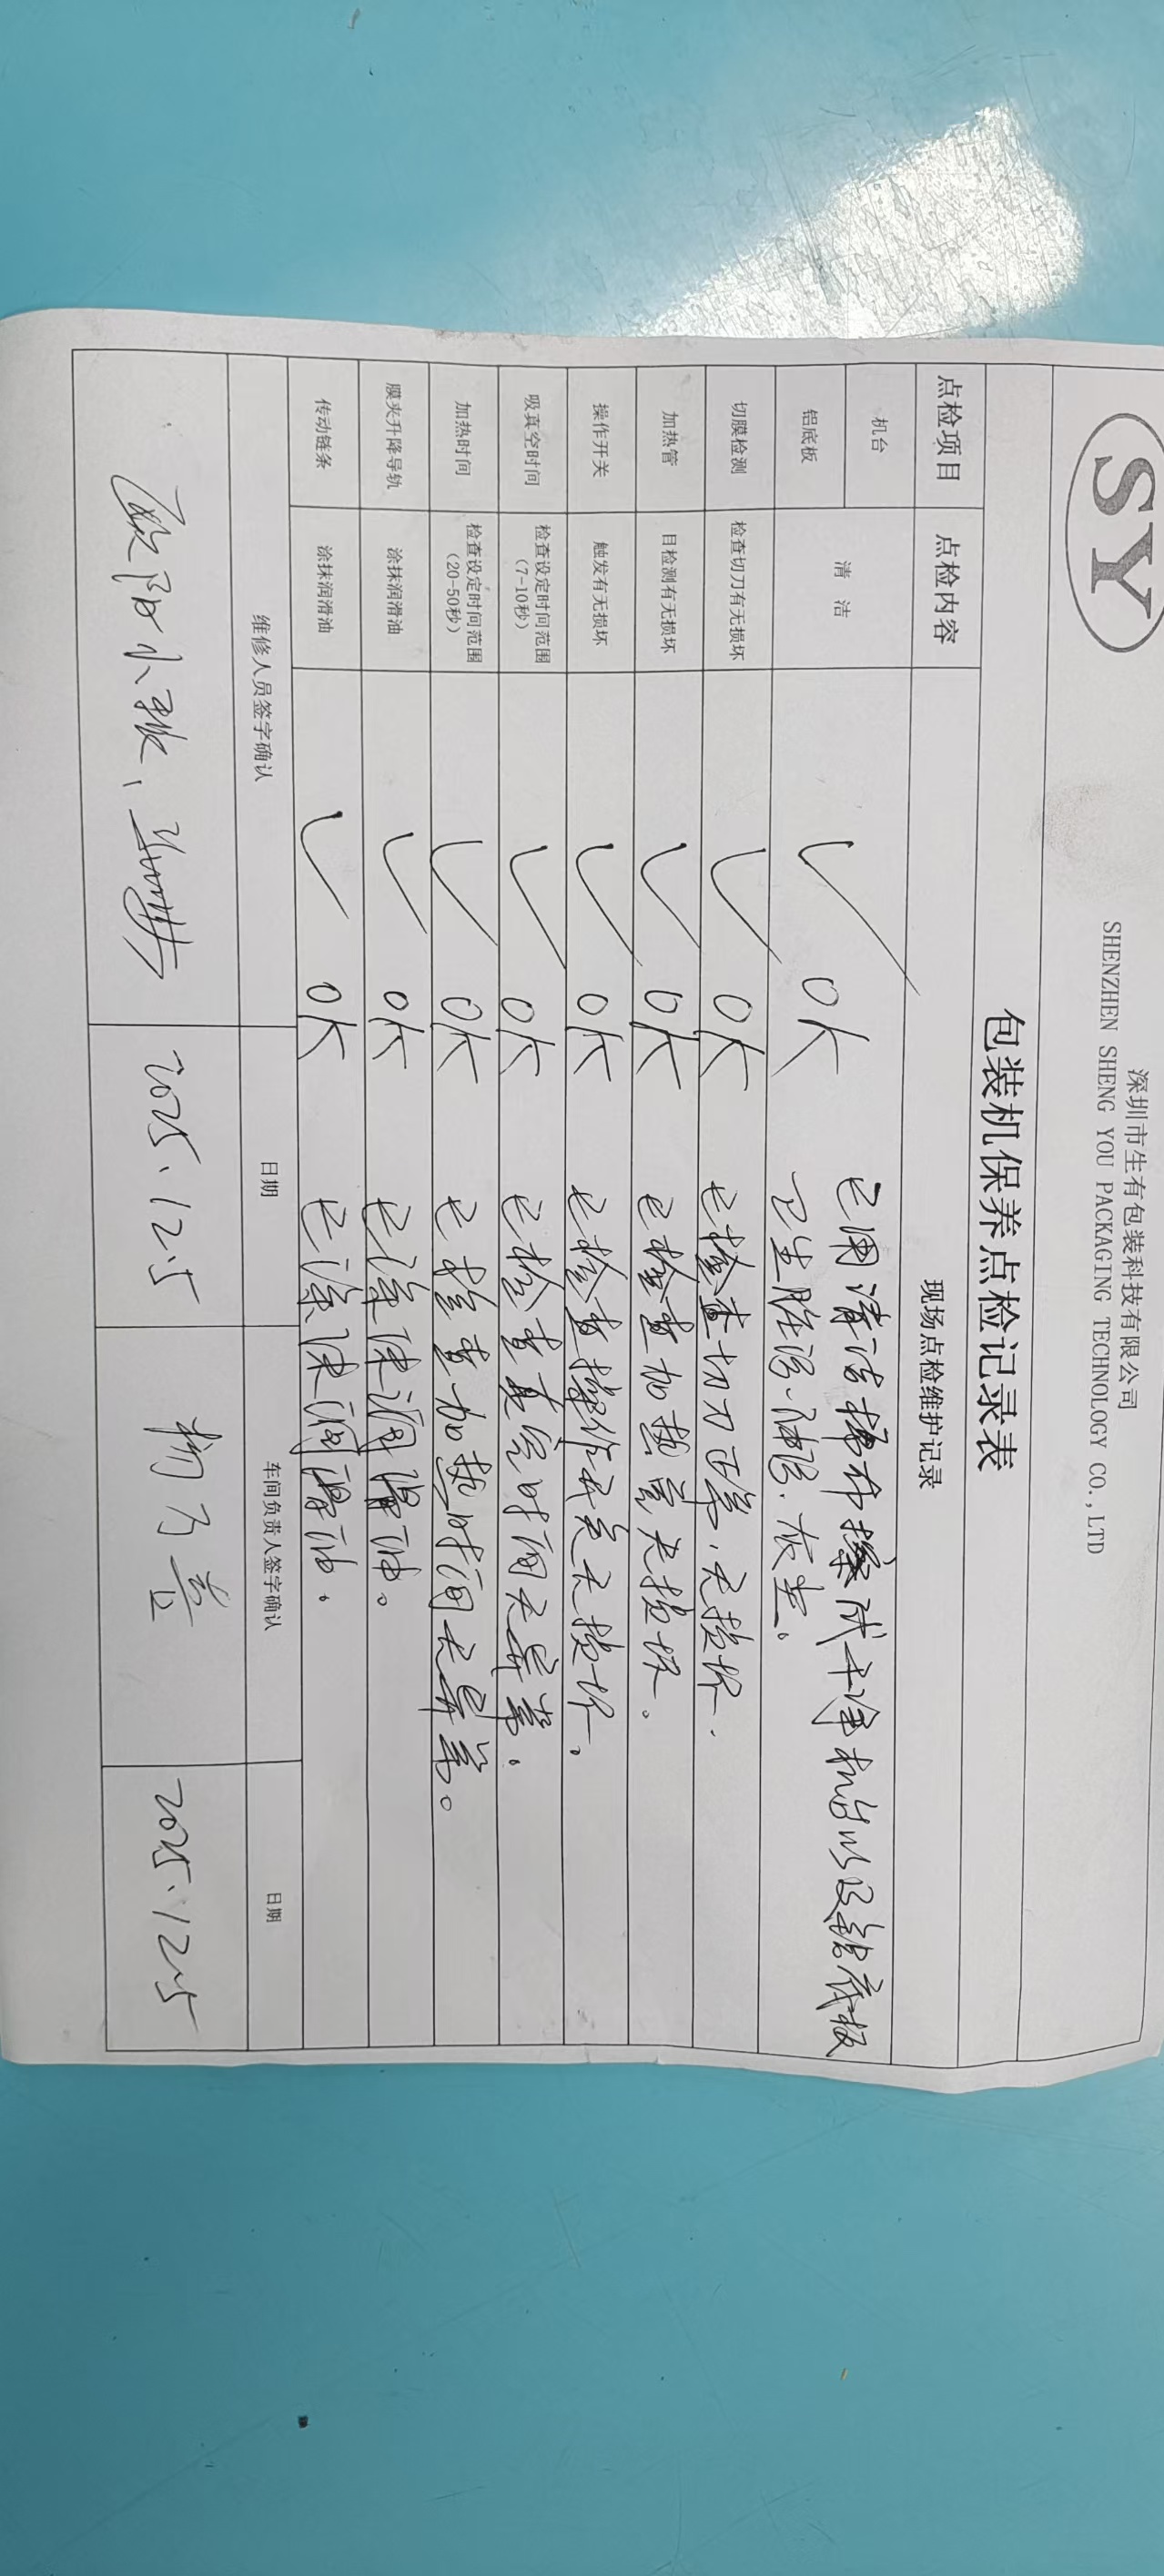 SY
深圳市生有包装科技有限公司
SHENZHEN SHENG YOU PACKAGING TECHNOLOGY CO.,LTD
包装机保养点检记录表
点检项目 点检内容 现场点检维护记录
机台 清 洁 ✓ OK 已用清洁抹布擦试干净机台以及铝底板
铝底板 卫生脏污、油渍、灰尘。
切膜检测 检查切刀有无损坏 ✓ OK 已检查切刀正常、无损坏.
加热管 目检测有无损坏 ✓ OK 已检查加热管无损坏.
操作开关 触发有无损坏 ✓ OK 已检查操作开关无损坏。
吸真空时间 检查设定时间范围 ✓ OK 已检查真空时间无异常.
(7-10秒)
加热时间 检查设定时间范围 ✓ OK 已检查加热时间无异常。
(20-50秒)
膜夹升降导轨 涂抹润滑油 ✓ OK 已涂抹润滑油。
传动链条 涂抹润滑油 ✓ OK 已涂抹润滑油.
维修人员签字确认 日期 车间负责人签字确认 日期
欧阳小 2025.12.5 2025.12.5